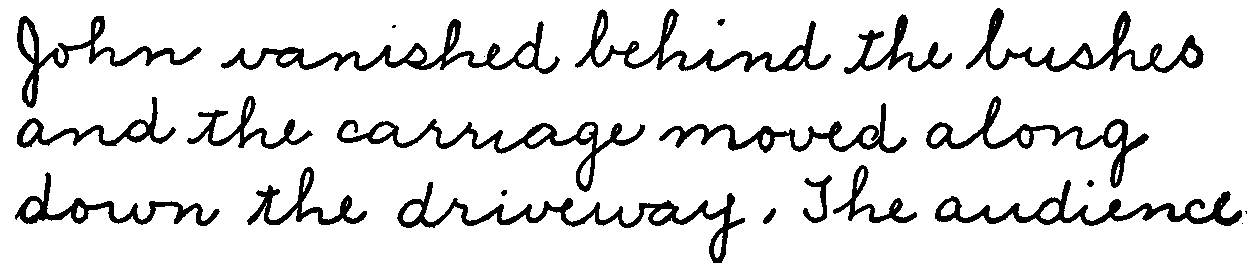 John vanished behind the bushes
and the carriage moved along
down the driveway. The audience